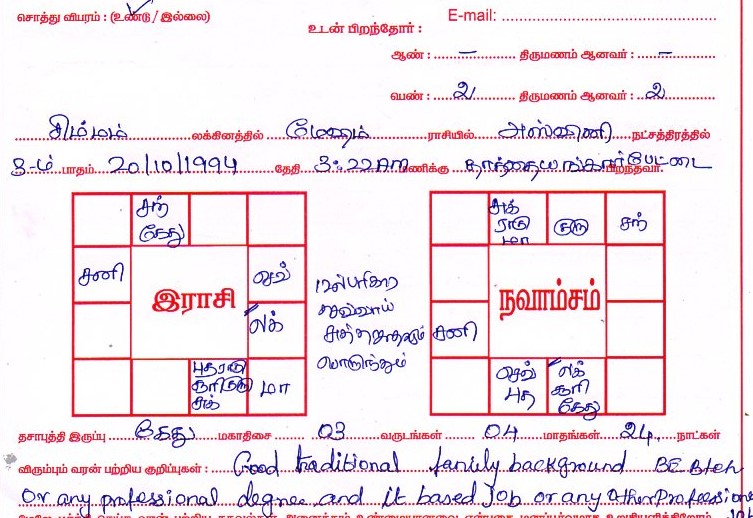 சொத்து விபரம் : (உண்டு / இல்லை)
E-mail:
உடன் பிறந்தோர் :
ஆண் : – திருமணம் ஆனவர் : –
பெண் : 2 திருமணம் ஆனவர் : 2
சிம்மம் லக்கினத்தில் மேஷம் ராசியில் அஸ்வினி நட்சத்திரத்தில்
3-ம் பாதம் 20/10/1994 தேதி 3:22AM மணிக்கு தாத்தையங்கார்பேட்டை பிறந்தவர்.
சந்
கேது
சனி
செவ்
லக்
புத ராகு
சூரி குரு
சுக்
மா
இராசி
பரிகார
செவ்வாய்
சுத்த ஜாதகமும்
பொருந்தும்
சுக்
ராகு
மா
குரு
சந்
சனி
செவ்
புத
லக்
சூரி
கேது
நவாம்சம்
தசாபுத்தி இருப்பு கேது மகாதிசை 03 வருடங்கள் 04 மாதங்கள் 24 நாட்கள்
விரும்பும் வரன் பற்றிய குறிப்புகள் : Good traditional family background BE Btech
or any professional degree and it based Job or any other Profession